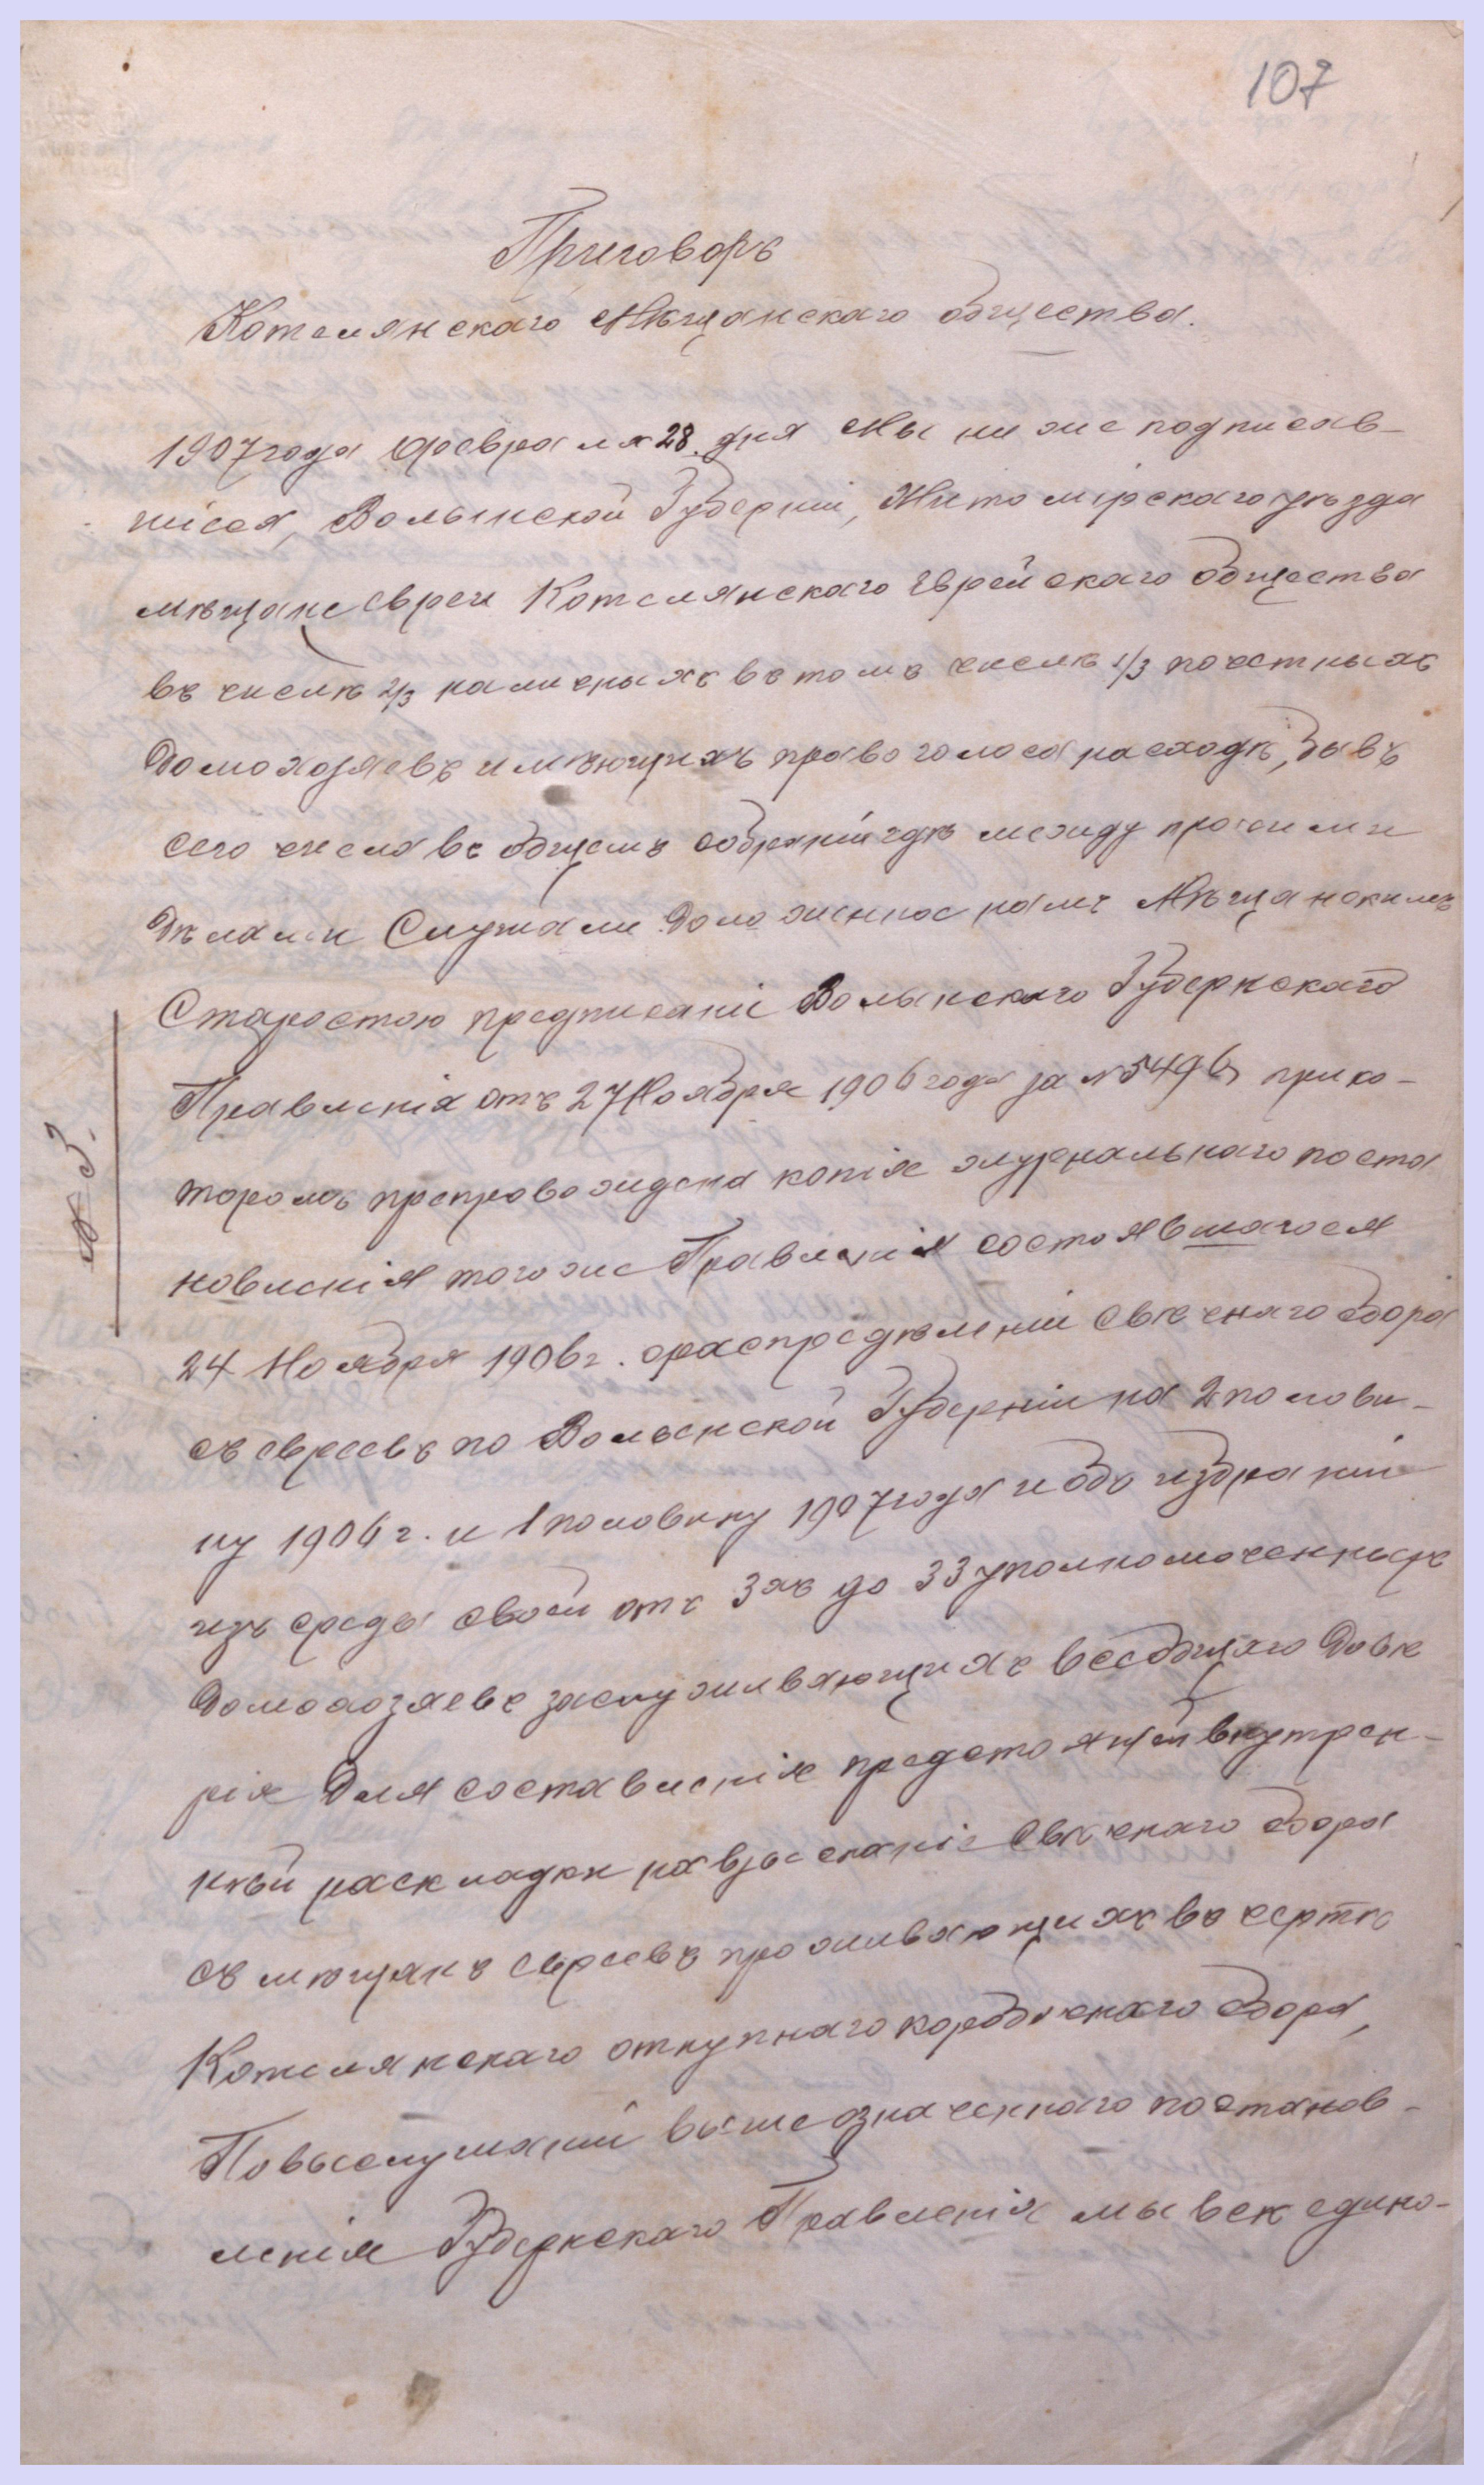 107
Приговоръ
Котелянскаго Мѣщанскаго общества.
1907 года февраля 28 дня Мы нижеподписав-
шіеся, Волынской Губерніи, Житомірскаго уѣзда
мѣщане евреи Котелянскаго Еврейскаго общества
въ числѣ 2/3 наличныхъ въ томъ числѣ 1/3 почетныхъ
домохозяевъ имѣющихъ право голоса насходѣ, бывъ
сего числа въ общемъ собраніи гдѣ между прочими
дѣлами Слушали доложенное намъ Мѣщанскимъ
Старостою предписаніе Волынскаго Губернскаго
Правленія отъ 27 Ноября 1906 года за № 5496 прико-
торомъ препровождена копія журнальнаго поста
новленія тогоже Правленія состоявшагося
24 Ноября 1906 г. ораспредѣленіи Свѣчнаго сбора
съ евреевъ по Волынской Губерніи на 2 полови-
ну 1906 г. и 1 половину 1907 года и объ избраніи
изъ среды своей отъ 3хъ до 33 уполномоченныхъ
домохозяевъ заслуживающихъ всеобщаго довѣ
рія для составленія предстоящей внутрен-
ней раскладки на взысканіе Свѣчнаго сбора
съ мѣщанъ евреевъ проживающихъ въ чертѣ
Котелянскаго откупнаго коробочнаго сбора,
Повыслушаніи вышеозначеннаго постанов-
ленія Губернскаго Правленія мы всѣ едино-